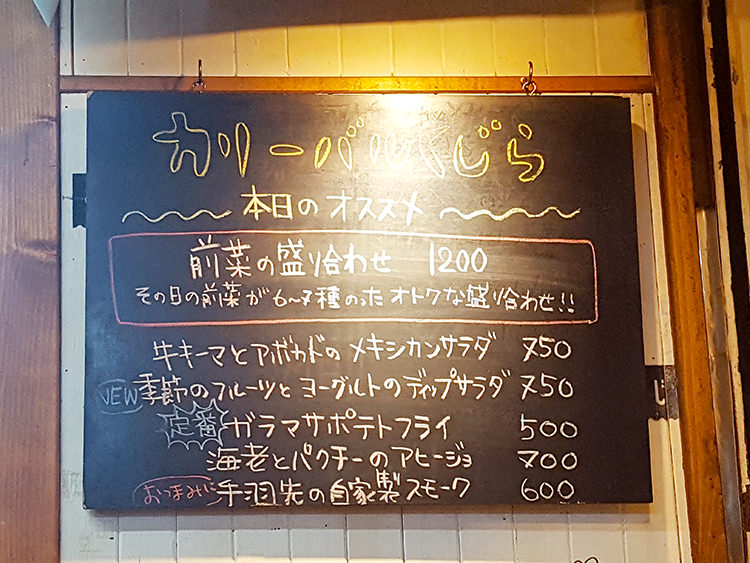 カリーバルくじら
本日のオススメ
前菜の盛り合わせ 1200
その日の前菜が6〜7種のったオトクな盛り合わせ!!
牛キーマとアボカドのメキシカンサラダ 750
NEW 季節のフルーツとヨーグルトのディップサラダ 750
定番 ガラマサポテトフライ 500
海老とパクチーのアヒージョ 700
おつまみに 手羽先の自家製スモーク 600